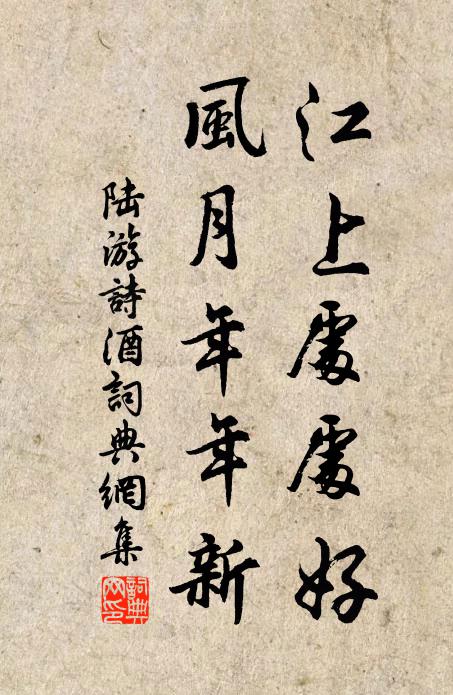 江上處處好
風月年年新
陸游詩酒詞典網集
詞典
网印